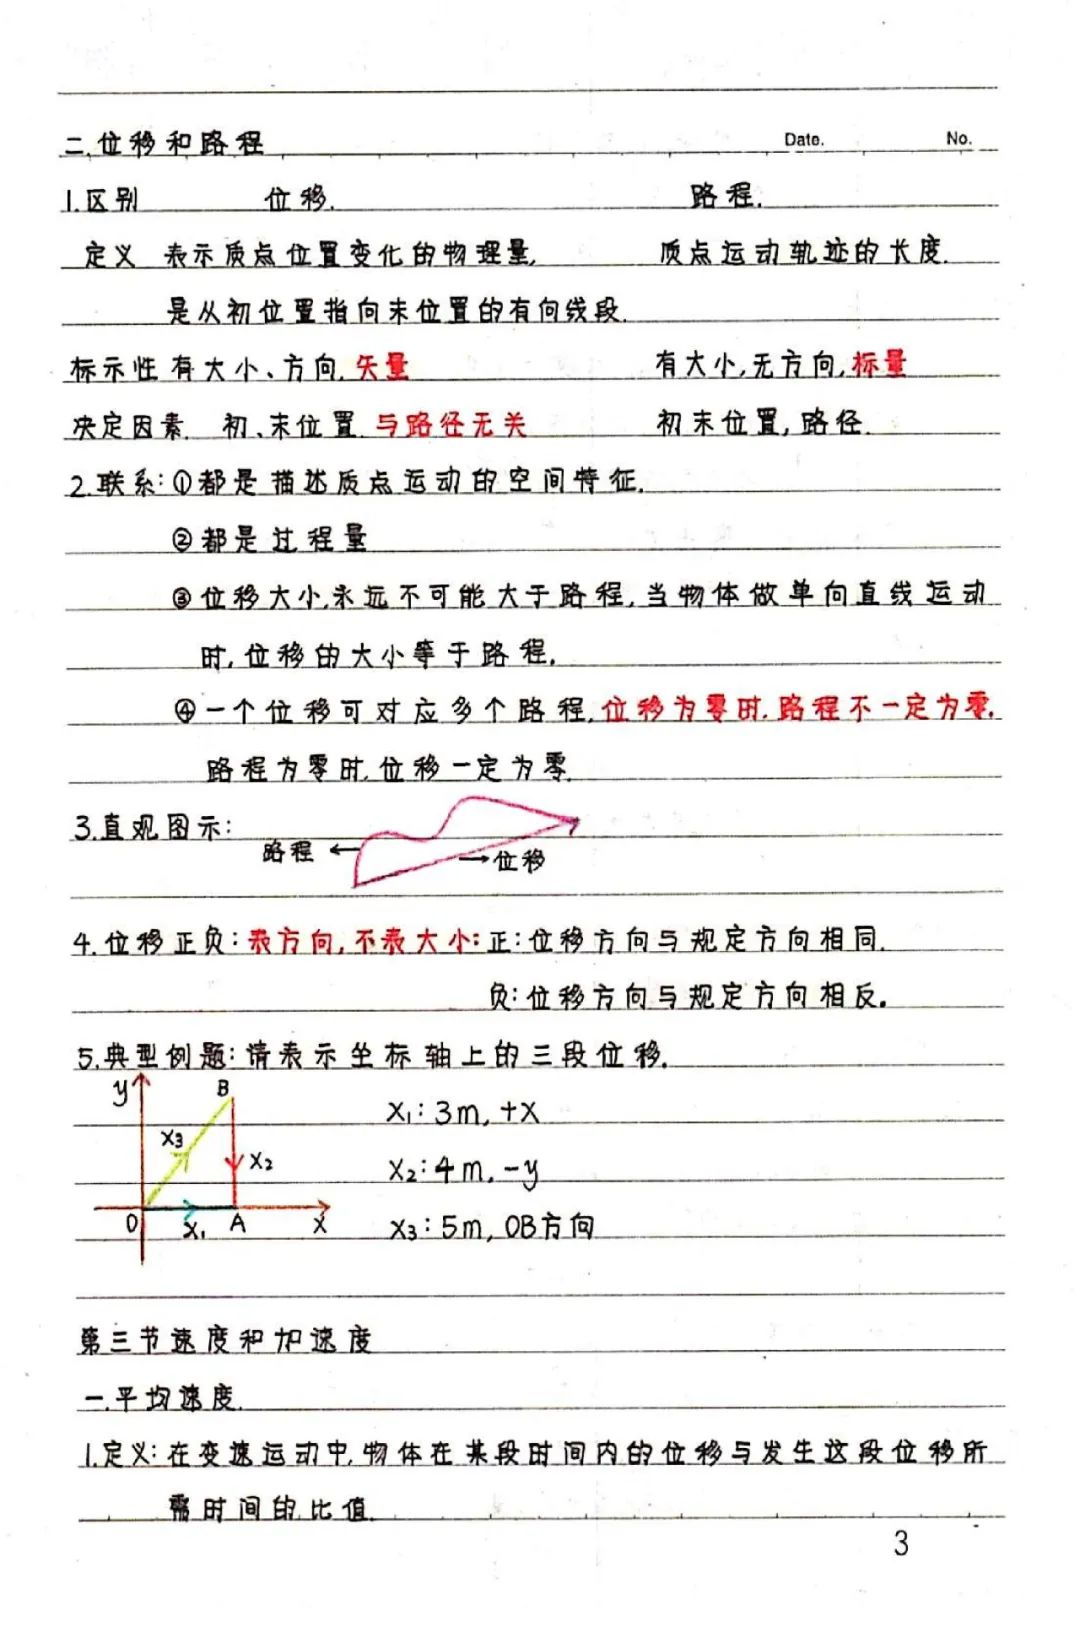 二.位移和路程 Date. No.
1.区别 位移. 路程.
定义 表示质点位置变化的物理量, 质点运动轨迹的长度.
是从初位置指向末位置的有向线段.
标示性 有大小、方向.矢量 有大小,无方向,标量
决定因素. 初、末位置.与路径无关 初末位置,路径.
2.联系:①都是描述质点运动的空间特征.
②都是过程量
③位移大小永远不可能大于路程,当物体做单向直线运动
时,位移的大小等于路程.
④一个位移可对应多个路程.位移为零时.路程不一定为零.
路程为零时.位移一定为零.
3.直观图示:
路程 ← → 位移
4.位移正负:表方向,不表大小:正:位移方向与规定方向相同.
负:位移方向与规定方向相反.
5.典型例题:请表示坐标轴上的三段位移.
y B
X₁:3m,+X
X₃ X₂
X₂:4m,-y
O X₁ A X
X₃:5m,OB方向
第三节速度和加速度
一.平均速度.
1.定义:在变速运动中,物体在某段时间内的位移与发生这段位移所
需时间的比值.
3